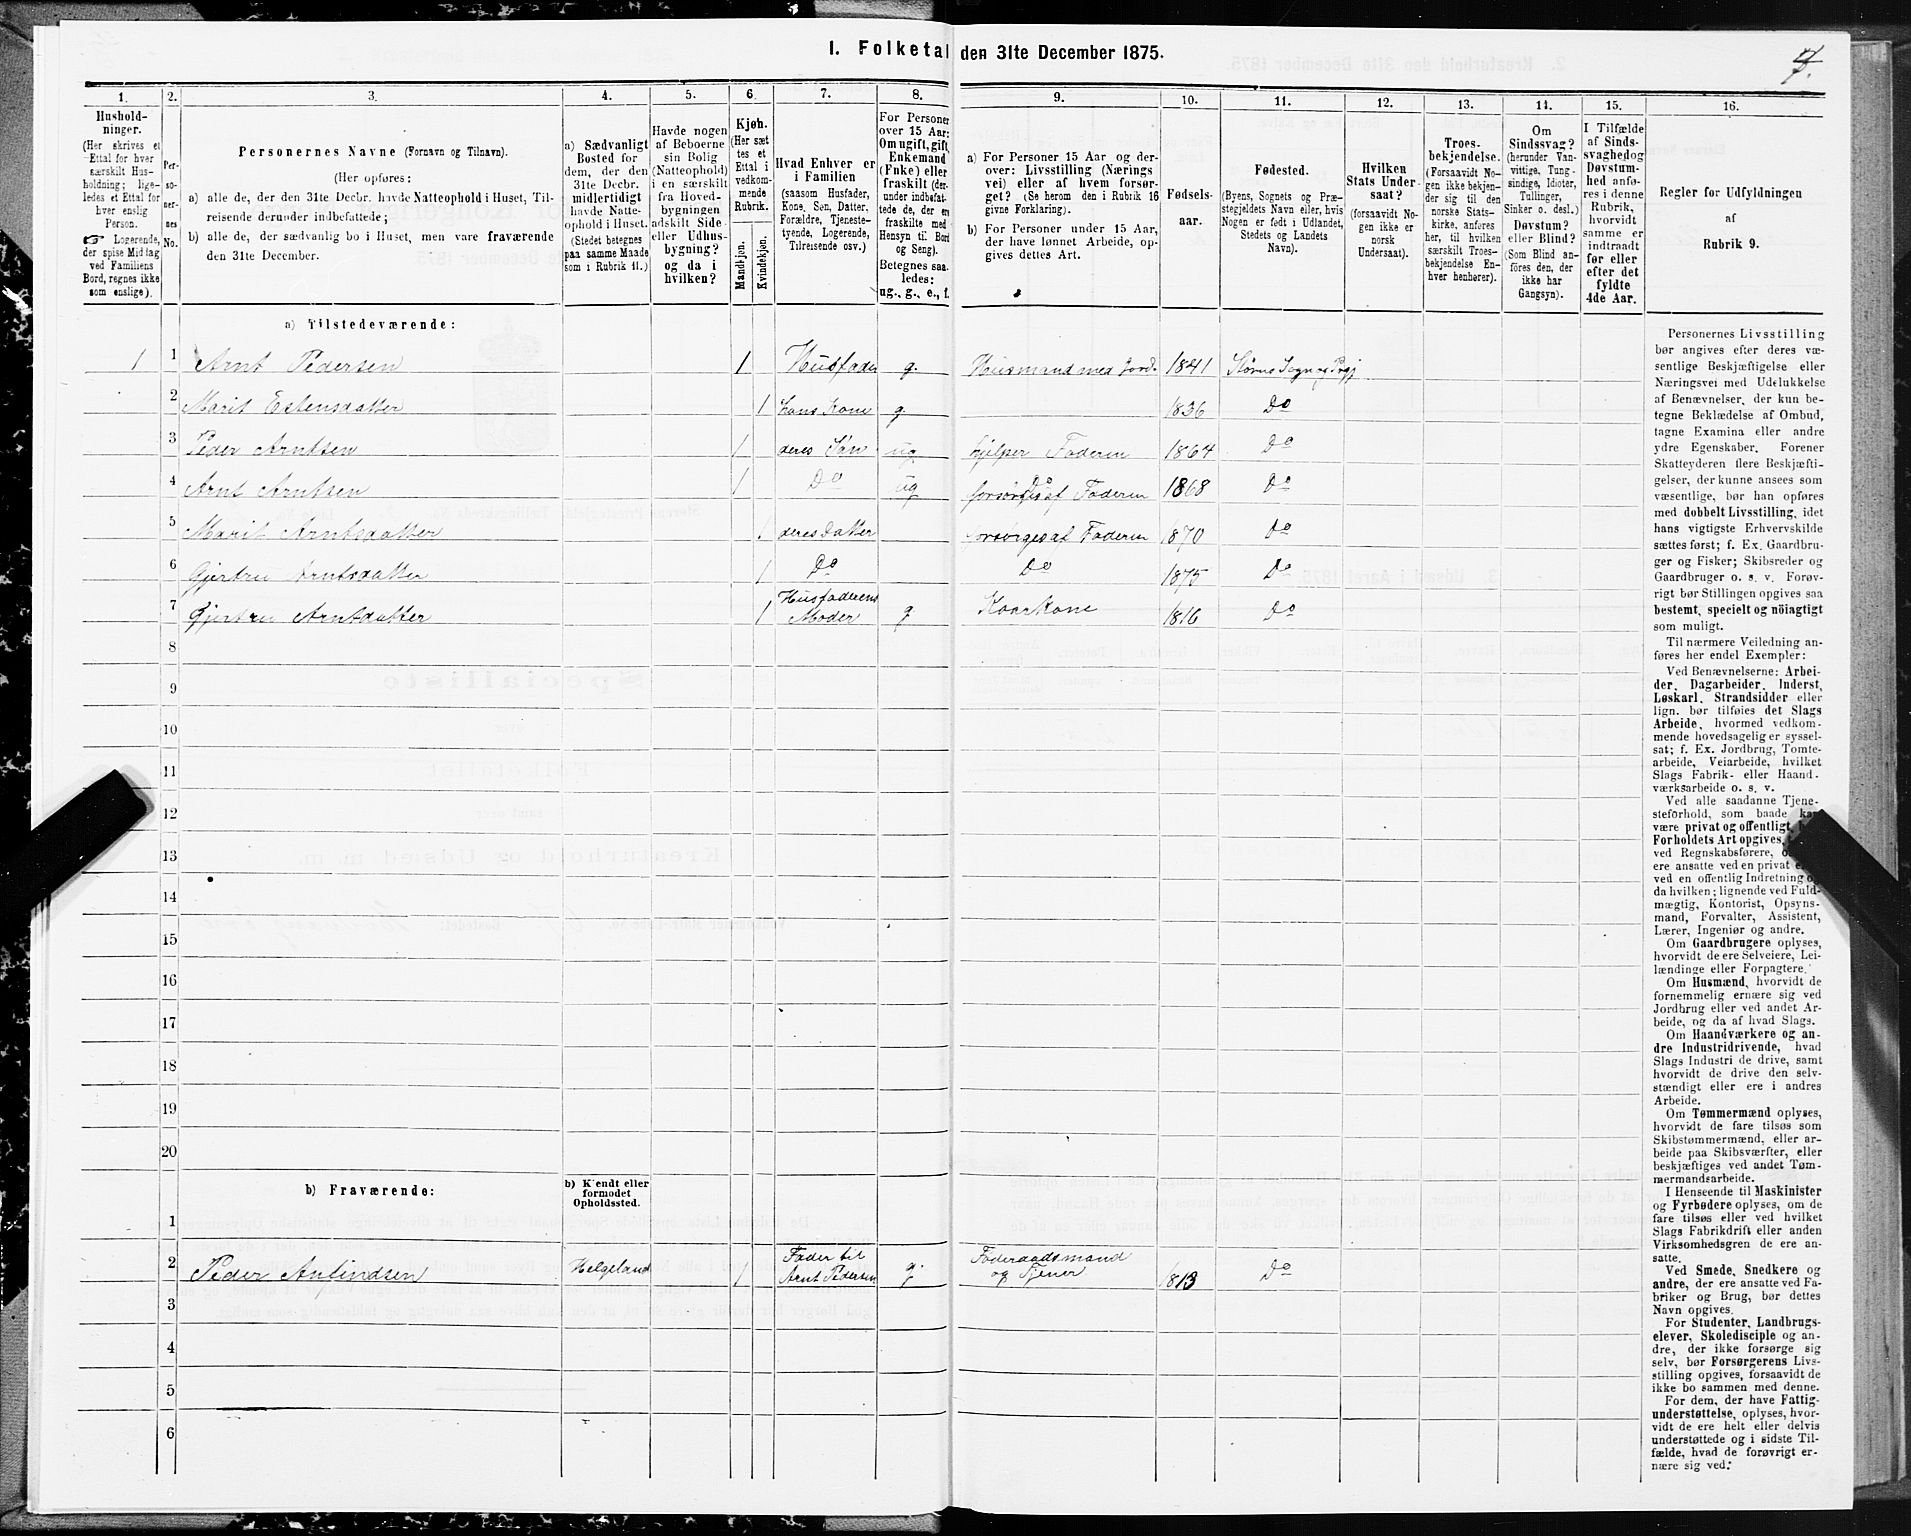 I. Folketal den 31te December 1875.
7.
1. 2. 3. 4. 5. 6. 7. 8. 9. 10. 11. 12. 13. 14. 15. 16.
Hushold-
ninger.
(Her skrives et
Ettal for hver
særskilt Hus-
holdning; lige-
ledes et Ettal for
hver enslig
Person.
☞ Logerende,
der spise Middag
ved Familiens
Bord, regnes ikke
som enslige).
Per-
so-
ner-
nes
No.
Personernes Navne (Fornavn og Tilnavn).
(Her opføres:
a) alle de, der den 31te Decbr. havde Natteophold i Huset, Til-
reisende derunder indbefattede;
b) alle de, der sædvanlig bo i Huset, men vare fraværende
den 31te December.
a) Sædvanligt
Bosted for
dem, der den
31te Decbr.
midlertidigt
havde Natte-
ophold i Huset.
(Stedet betegnes
paa samme Maade
som i Rubrik 11.)
Havde nogen
af Beboerne
sin Bolig
(Natteophold)
i en særskilt
fra Hoved-
bygningen
adskilt Side-
eller Udhus-
bygning?
og da i
hvilken?
Kjøn.
(Her sæt-
tes et
Ettal i
vedkom-
mende
Rubrik.
Mandkjøn.
Kvindekjøn.
Hvad Enhver er
i Familien
(saasom Husfader,
Kone, Søn, Datter,
Forældre, Tjeneste-
tyende, Logerende,
Tilreisende osv.)
For Personer
over 15 Aar:
Om ugift, gift,
Enkemand
(Enke) eller
fraskilt (der-
under indbefat-
tede de, der ere
fraskilte med
Hensyn til Bord
og Seng).
Betegnes saa-
ledes:
ug., g., e., f.
a) For Personer 15 Aar og der-
over: Livsstilling (Nærings-
vei) eller af hvem forsør-
get? (Se herom den i Rubrik 16
givne Forklaring).
b) For Personer under 15 Aar,
der have lønnet Arbeide, op-
gives dettes Art.
Fødsels-
aar.
Fødested.
(Byens, Sognets og Præ-
stegjeldets Navn eller, hvis
Nogen er født i Udlandet,
Stedets og Landets
Navn).
Hvilken
Stats Under-
saat?
(forsaavidt No-
gen ikke er
norsk
Undersaat).
Troes-
bekjendelse.
(Forsaavidt No-
gen ikke bekjen-
der sig til den
norske Stats-
kirke, anføres
her, til hvilken
særskilt Troes-
bekjendelse En-
hver henhører).
Om
Sindssvag?
(herunder Van-
vittige, Tung-
sindige, Idioter,
Tullinger,
Sinker o. desl.)
Døvstum?
eller Blind?
(Som Blind an-
føres den, der
ikke har
Gangsyn).
I Tilfælde
af Sinds-
svaghed og
Døvstum-
hed anfø-
res i denne
Rubrik,
hvorvidt
samme er
indtraadt
før eller
efter det
fyldte
4de Aar.
Regler for Udfyldningen
af
Rubrik 9.
a) Tilstedeværende:
1 1 Arnt Pedersen 1 Husfader g. Husmand med Jord. 1841 Størens Sogn og Prgj
2 Marit Estensdatter 1 hans Kone g. 1836 Do
3 Peder Arntsen 1 deres Søn ug. hjelper Faderen 1864 Do
4 Arnt Arntsen 1 Do ug forsørges af Faderen 1868 Do
5 Marit Arntsdatter 1 deres Datter forsørges af Faderen 1870 Do
6 Gjertru Arntsdatter 1 Do Do 1875 Do
7 Gjertru Arntsdatter 1 Husfaderens Moder g Kaarkone 1816 Do
8
9
10
11
12
13
14
15
16
17
18
19
20
b) Fraværende:
b) Kjendt eller
formodet
Opholdssted.
1
2 Peder Anfindsen Helgeland 1 Fader til Arnt Pedersen g. Føderaadsmand og Tjener 1813 Do
3
4
5
6
Personernes Livsstilling
bør angives efter deres væ-
sentlige Beskjæftigelse eller
Næringsvei med Udelukkelse
af Benævnelser, der kun be-
tegne Beklædelse af Ombud,
tagne Examina eller andre
ydre Egenskaber. Forener
Skatteyderen flere Beskjæfti-
gelser, der kunne ansees som
væsentlige, bør han opføres
med dobbelt Livsstilling, idet
hans vigtigste Erhvervskilde
sættes først; f. Ex. Gaardbru-
ger og Fisker; Skibsreder og
Gaardbruger o. s. v. Forøv-
rigt bør Stillingen opgives saa
bestemt, specielt og nöiagtigt
som muligt.
Til nærmere Veiledning an-
føres her endel Exempler:
Ved Benævnelserne: Arbei-
der, Dagarbeider, Inderst,
Løskarl, Strandsidder eller
lign. bør tilføies det Slags
Arbeide, hvormed vedkom-
mende hovedsagelig er syssel-
sat; f. Ex. Jordbrug, Tomte-
arbeide, Veiarbeide, hvilket
Slags Fabrik- eller Haand-
værksarbeide o. s. v.
Ved alle saadanne Tjene-
steforhold, som baade
være privat og offentligt,
Forholdets Art opgives,
ved Regnskabsførere,
ere ansatte ved en privat
ved en offentlig Indretning
da hvilken; lignende ved Fuld-
mægtig, Kontorist, Opsyns-
mand, Forvalter, Assistent,
Lærer, Ingeniør og andre.
Om Gaardbrugere oplyses,
hvorvidt de ere Selveiere, Lei-
lændinge eller Forpagtere.
Om Husmænd, hvorvidt de
fornemmelig ernære sig ved
Jordbrug eller ved andet Ar-
beide, og da af hvad Slags.
Om Haandværkere og an-
dre Industridrivende, hvad
Slags Industri de drive, samt
hvorvidt de drive den selv-
stændigt eller ere i andres
Arbeide.
Om Tømmermænd oplyses,
hvorvidt de fare tilsøs som
Skibstømmermænd, eller ar-
beide paa Skibsværfter, eller
beskjæftiges ved andet Tøm-
mermandsarbeide.
I Henseende til Maskinister
og Fyrbødere oplyses, om de
fare tilsøs eller ved hvilket
Slags Fabrikdrift eller anden
Virksomhedsgren de ere an-
satte.
Ved Smede, Snedkere og
andre, der ere ansatte ved Fa-
briker og Brug, bør dettes
Navn opgives.
For Studenter, Landbrugs-
elever, Skoledisciple og an-
dre, der ikke forsørge sig
selv, bør Forsørgerens Livs-
stilling opgives, forsaavidt de
ikke bo sammen med denne.
For dem, der have Fattig-
understøttelse, oplyses, hvor-
vidt de ere helt eller delvis
understøttede og i sidste Til-
fælde, hvad de forøvrigt er-
nære sig ved.